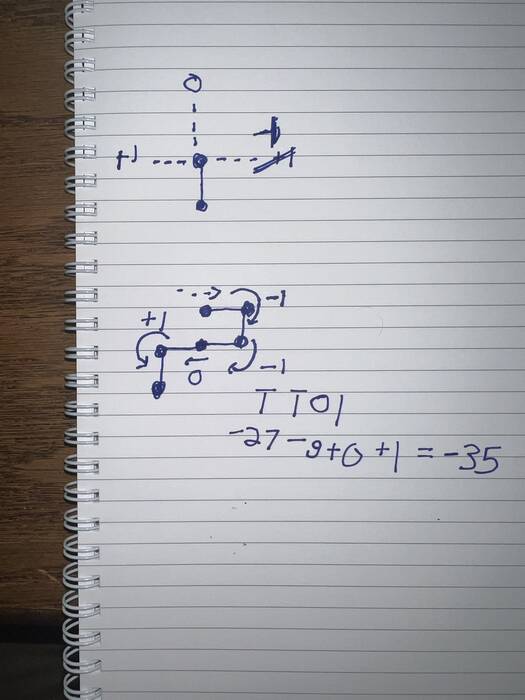 0
+1
-1
-1
+1
0
-1
T T 0 1
-27 -9+0 +1 = -35